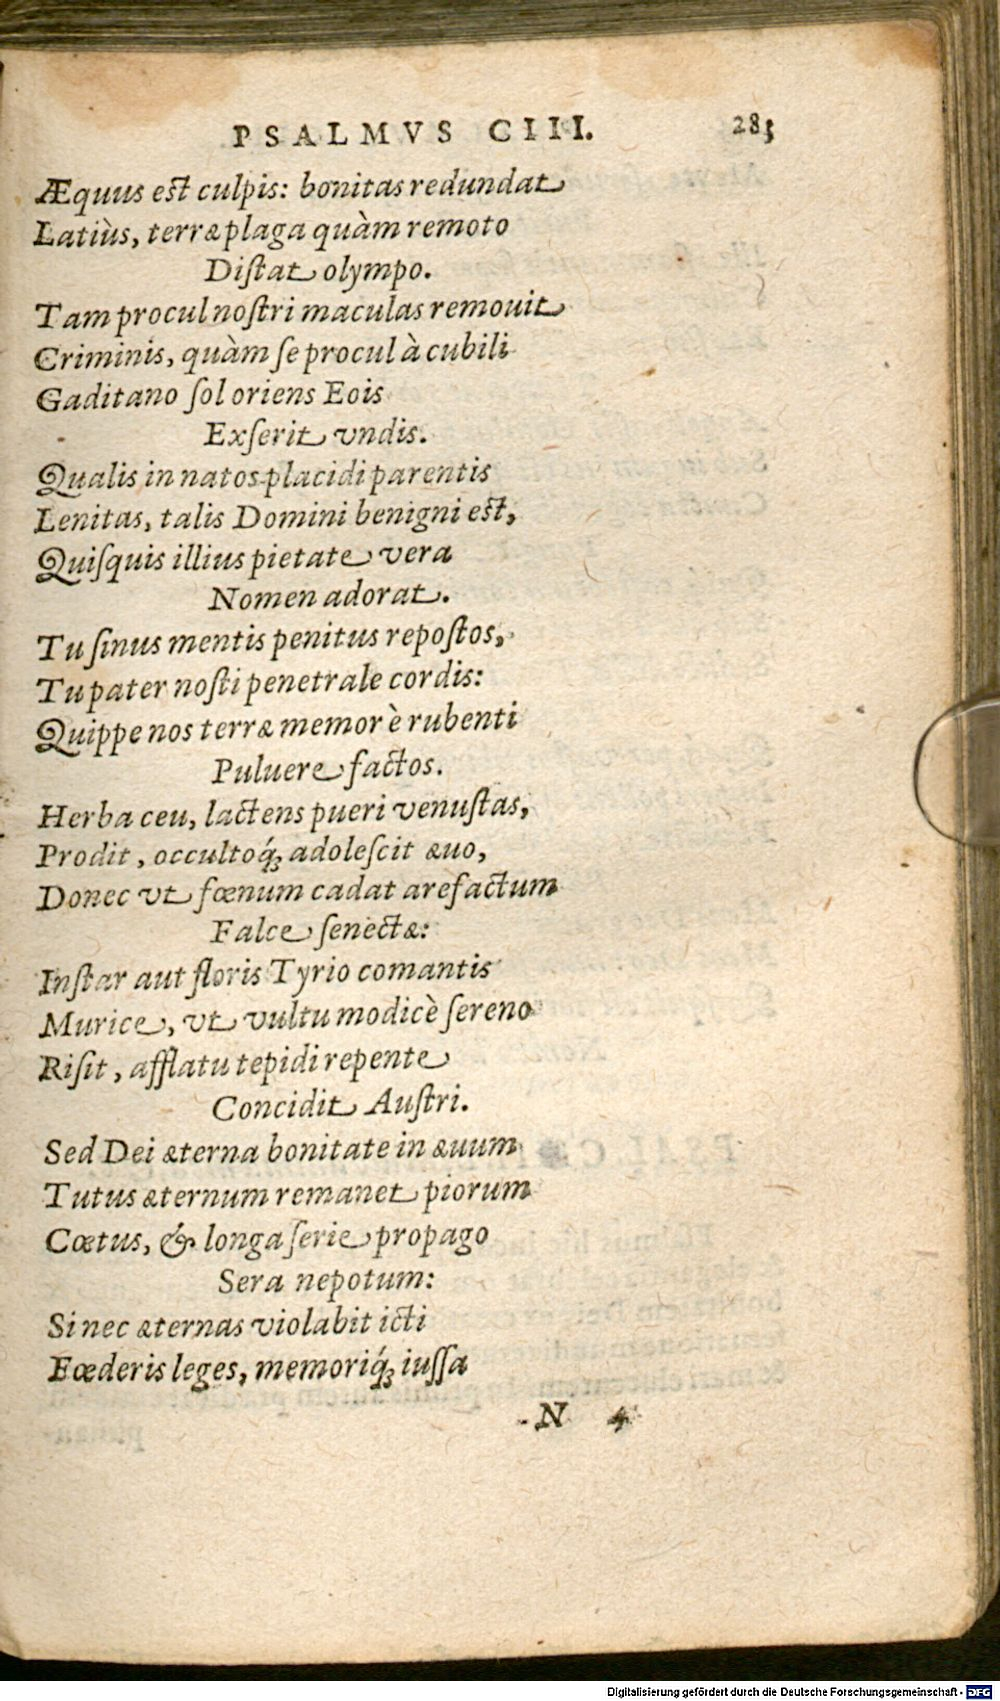 PSALMVS CIII. 285
Æquus est culpis: bonitas redundat
Latiùs, terræ plaga quàm remoto
Distat olympo.
Tam procul nostri maculas remouit
Criminis, quàm se procul à cubili
Gaditano sol oriens Eois
Exserit vndis.
Qualis in natos placidi parentis
Lenitas, talis Domini benigni est,
Quisquis illius pietate vera
Nomen adorat.
Tu sinus mentis penitus repostos,
Tu pater nosti penetrale cordis:
Quippe nos terræ memor è rubenti
Puluere factos.
Herba ceu, lactens pueri venustas,
Prodit, occultoq́; adolescit æuo,
Donec vt fœnum cadat arefactum
Falce senectæ:
Instar aut floris Tyrio comantis
Murice, vt vultu modicè sereno
Risit, afflatu tepidi repente
Concidit Austri.
Sed Dei æterna bonitate in æuum
Tutus æternum remanet piorum
Cœtus, & longa serie propago
Sera nepotum:
Si nec æternas violabit icti
Fœderis leges, memoriq́; iussa
N
Digitalisierung gefördert durch die Deutsche Forschungsgemeinschaft - DFG